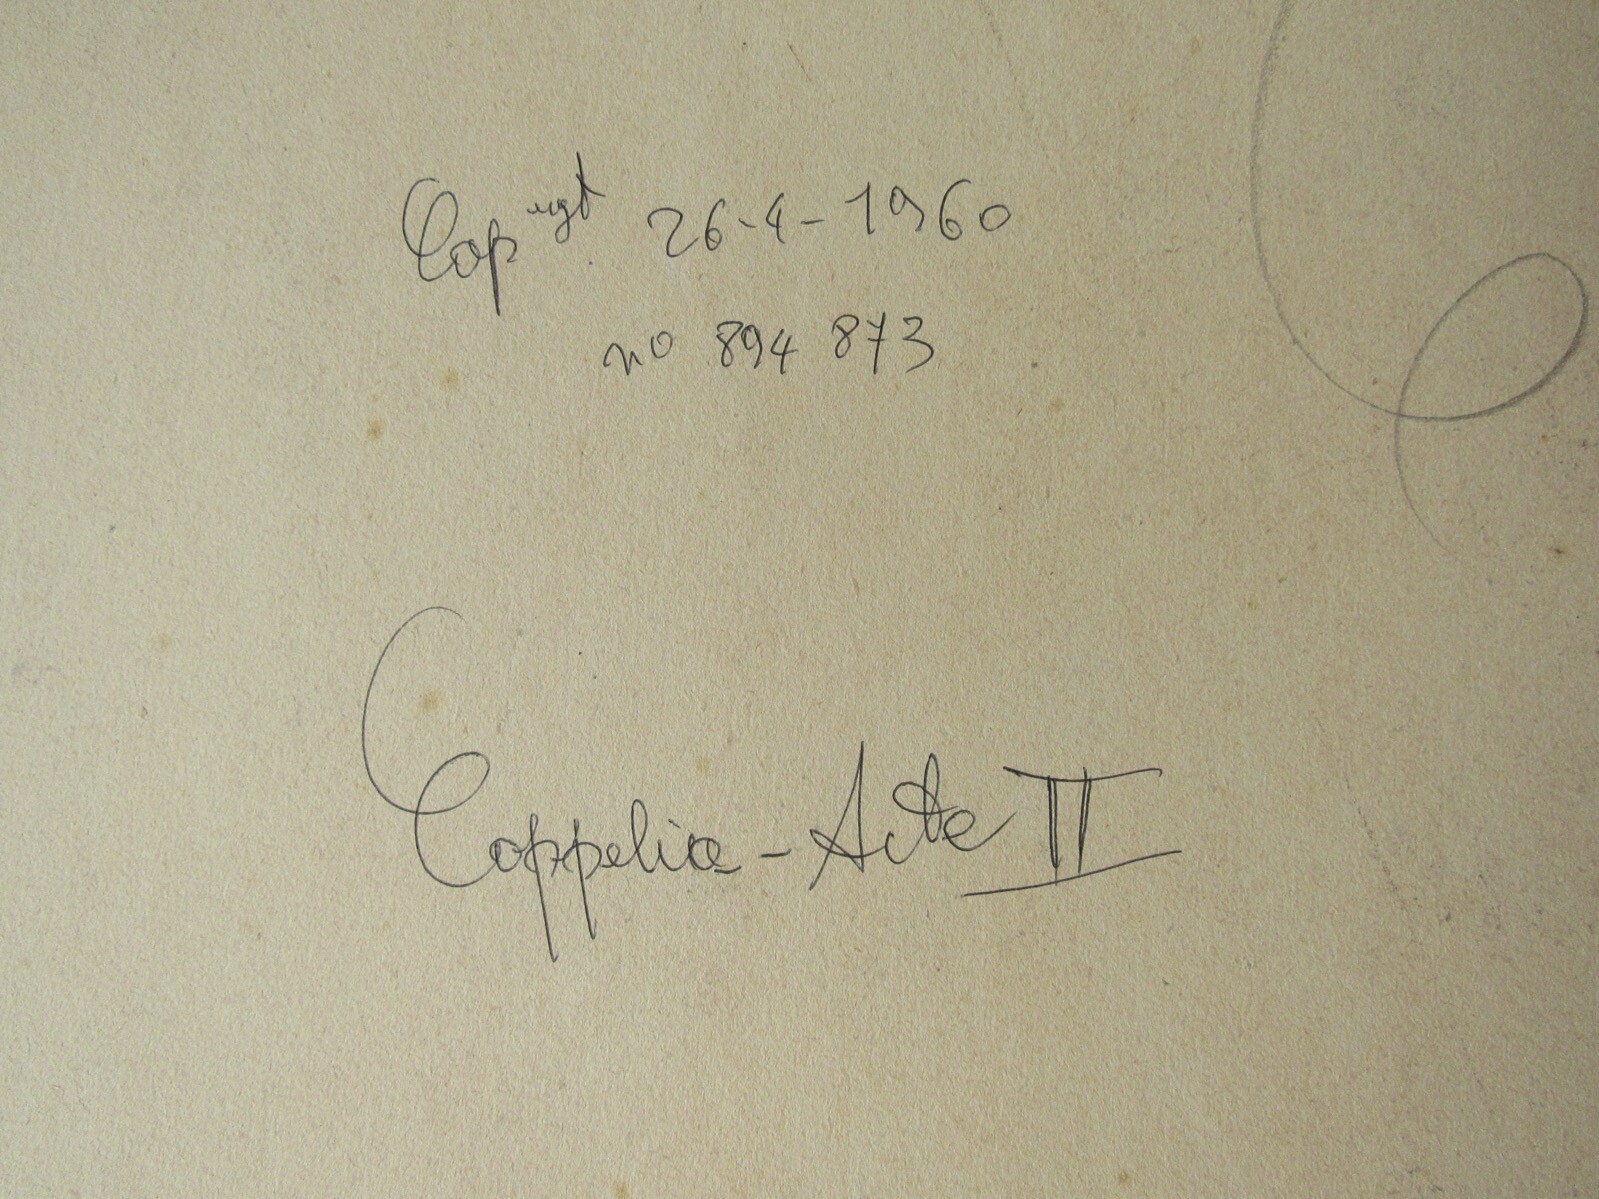 Cop ygt 26-4-1960
no 894 873
Coppelia - Acte II